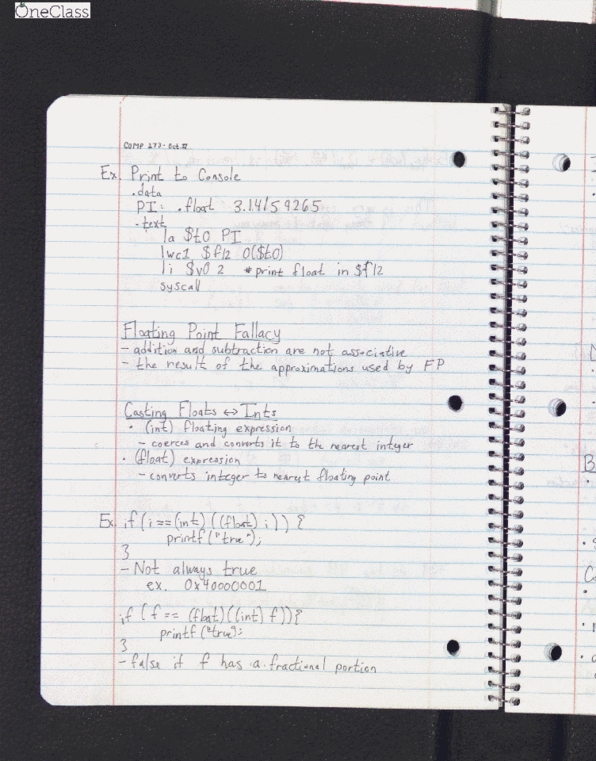 OneClass
COMP 273 - Oct.
Ex. Print to Console
.data
PI: .float 3.14159265
.text
la $t0 PI
lwc1 $f12 0($t0)
li $v0 2 #print float in $f12
syscall
Floating Point Fallacy
- addition and subtraction are not associative
- the result of the approximations used by FP
Casting Floats ↔ Ints
• (int) floating expression
- coerces and converts it to the nearest integer
• (float) expression
- converts integer to nearest floating point
Ex. if (i == (int)((float) i)) {
printf("true");
}
- Not always true
ex. 0x40000001
if (f == (float)((int) f)) {
printf("true);
}
- false if f has a fractional portion